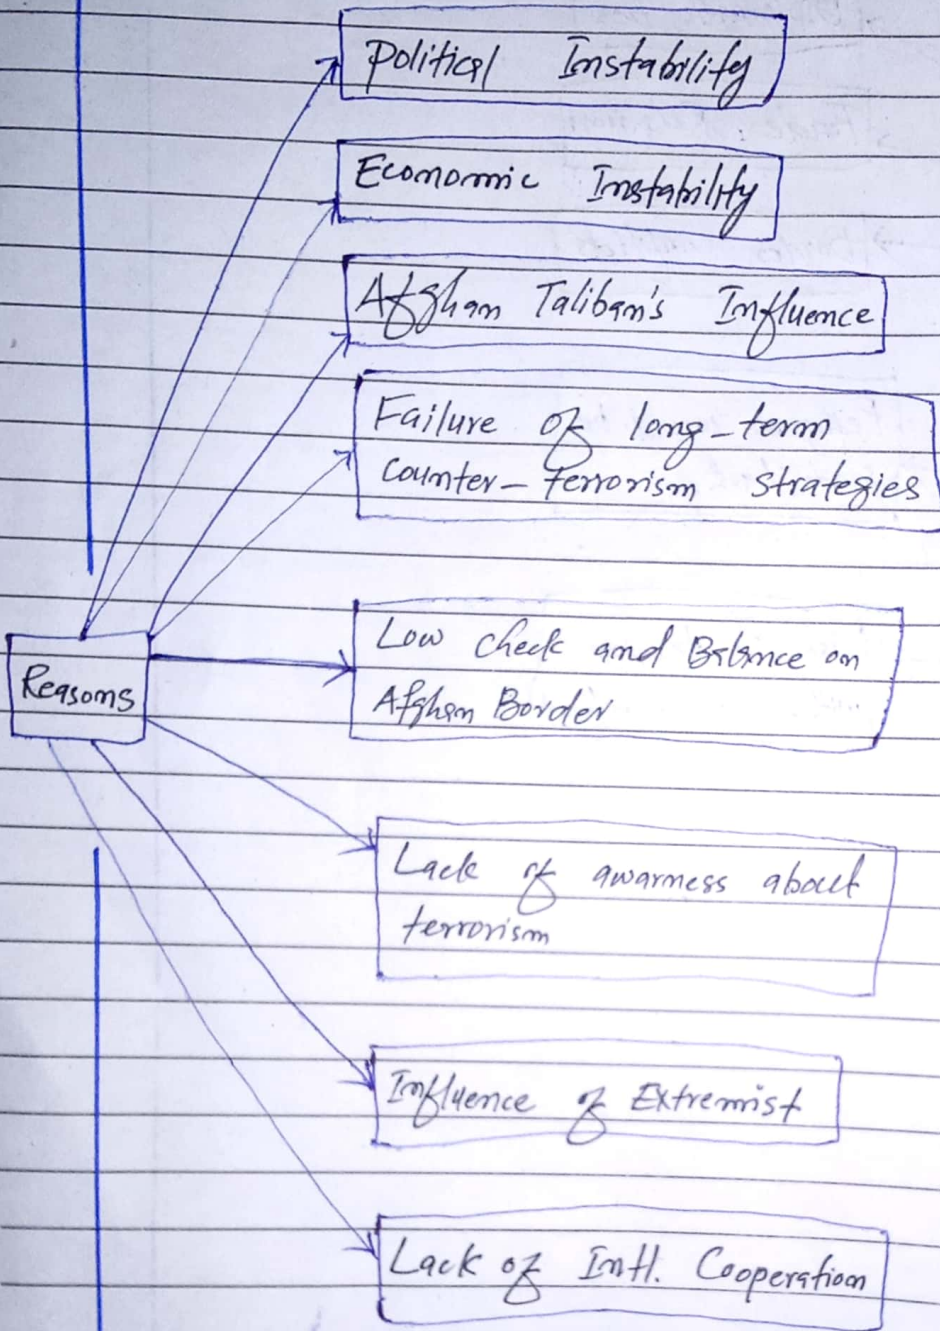 Political Instability
Economic Instability
Afghan Taliban's Influence
Failure of long-term
counter-terrorism strategies
Reasons
Low check and Balance on
Afghan Border
Lack of awarness about
terrorism
Influence of Extremist
Lack of Intl. Cooperation